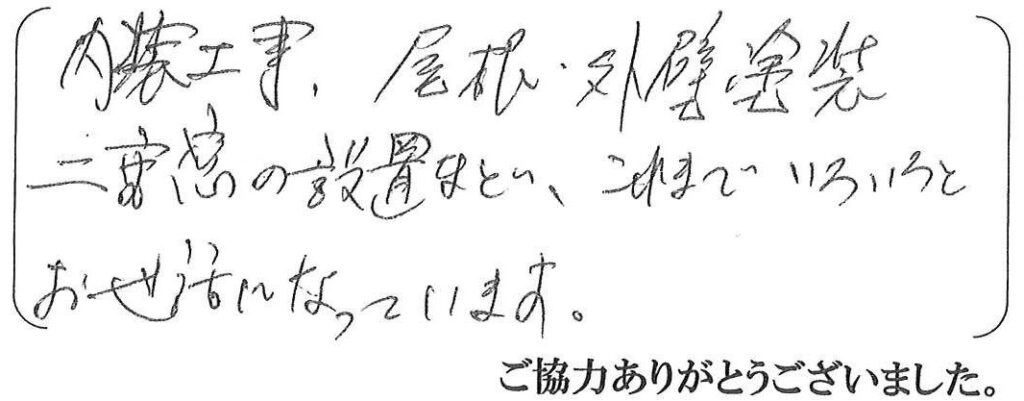 内装工事、尾根・外壁塗装
二重窓の設置など、これまでいろいろと
お世話になっています。
ご協力ありがとうございました。